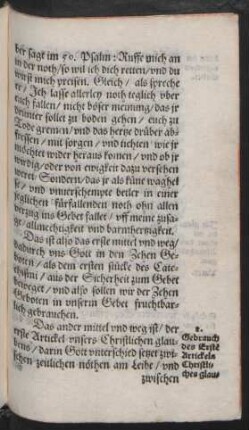 ber sagt im 50. Psalm: Ruffe mich an
in der noth / so wil ich dich retten / vnd du
wirst mich preisen. Gleich / als spreche
er / Ich lasse allerley noth teglich vber
euch fallen / nicht böser meinung / das jr
drünter sollet zu boden gehen / euch zu
Tode gremen / vnd das hertze drüber ab-
fressen / mit sorgen / vnd tichten wie jr
möchtet wider heraus komen / vnd ob jr
wirdig / oder von ewigkeit dazu versehen
weret. Sondern / das jr als küne waghel
se / vnd vnuerschempte betler in einer
jeglichen fürfallenden noth ohn allen
verzug ins Gebet fallet / vff meine zusa-
ge / allmechtigkeit vnd barmhertzigkeit.
Das ist also das erste mittel vnd weg /
dadurch vns Gott in den Zehen Ge-
boten / als dem ersten stücke des Cate-
chismi / aus der Sicherheit zum Gebet
beweget / vnd also sollen wir der Zehen
Geboten in vnserm Gebet fruchtbar-
lich gebrauchen.
Das ander mittel vnd weg ist / der
erste Artickel vnsers Christlichen glau-
bens / darin Gott vnterschied setzet zwi-
schen zeitlichen nöthen am Leibe / vnd
zwischen
2.
Gebrauch
des Erste
Artickels
Christli-
ches glau